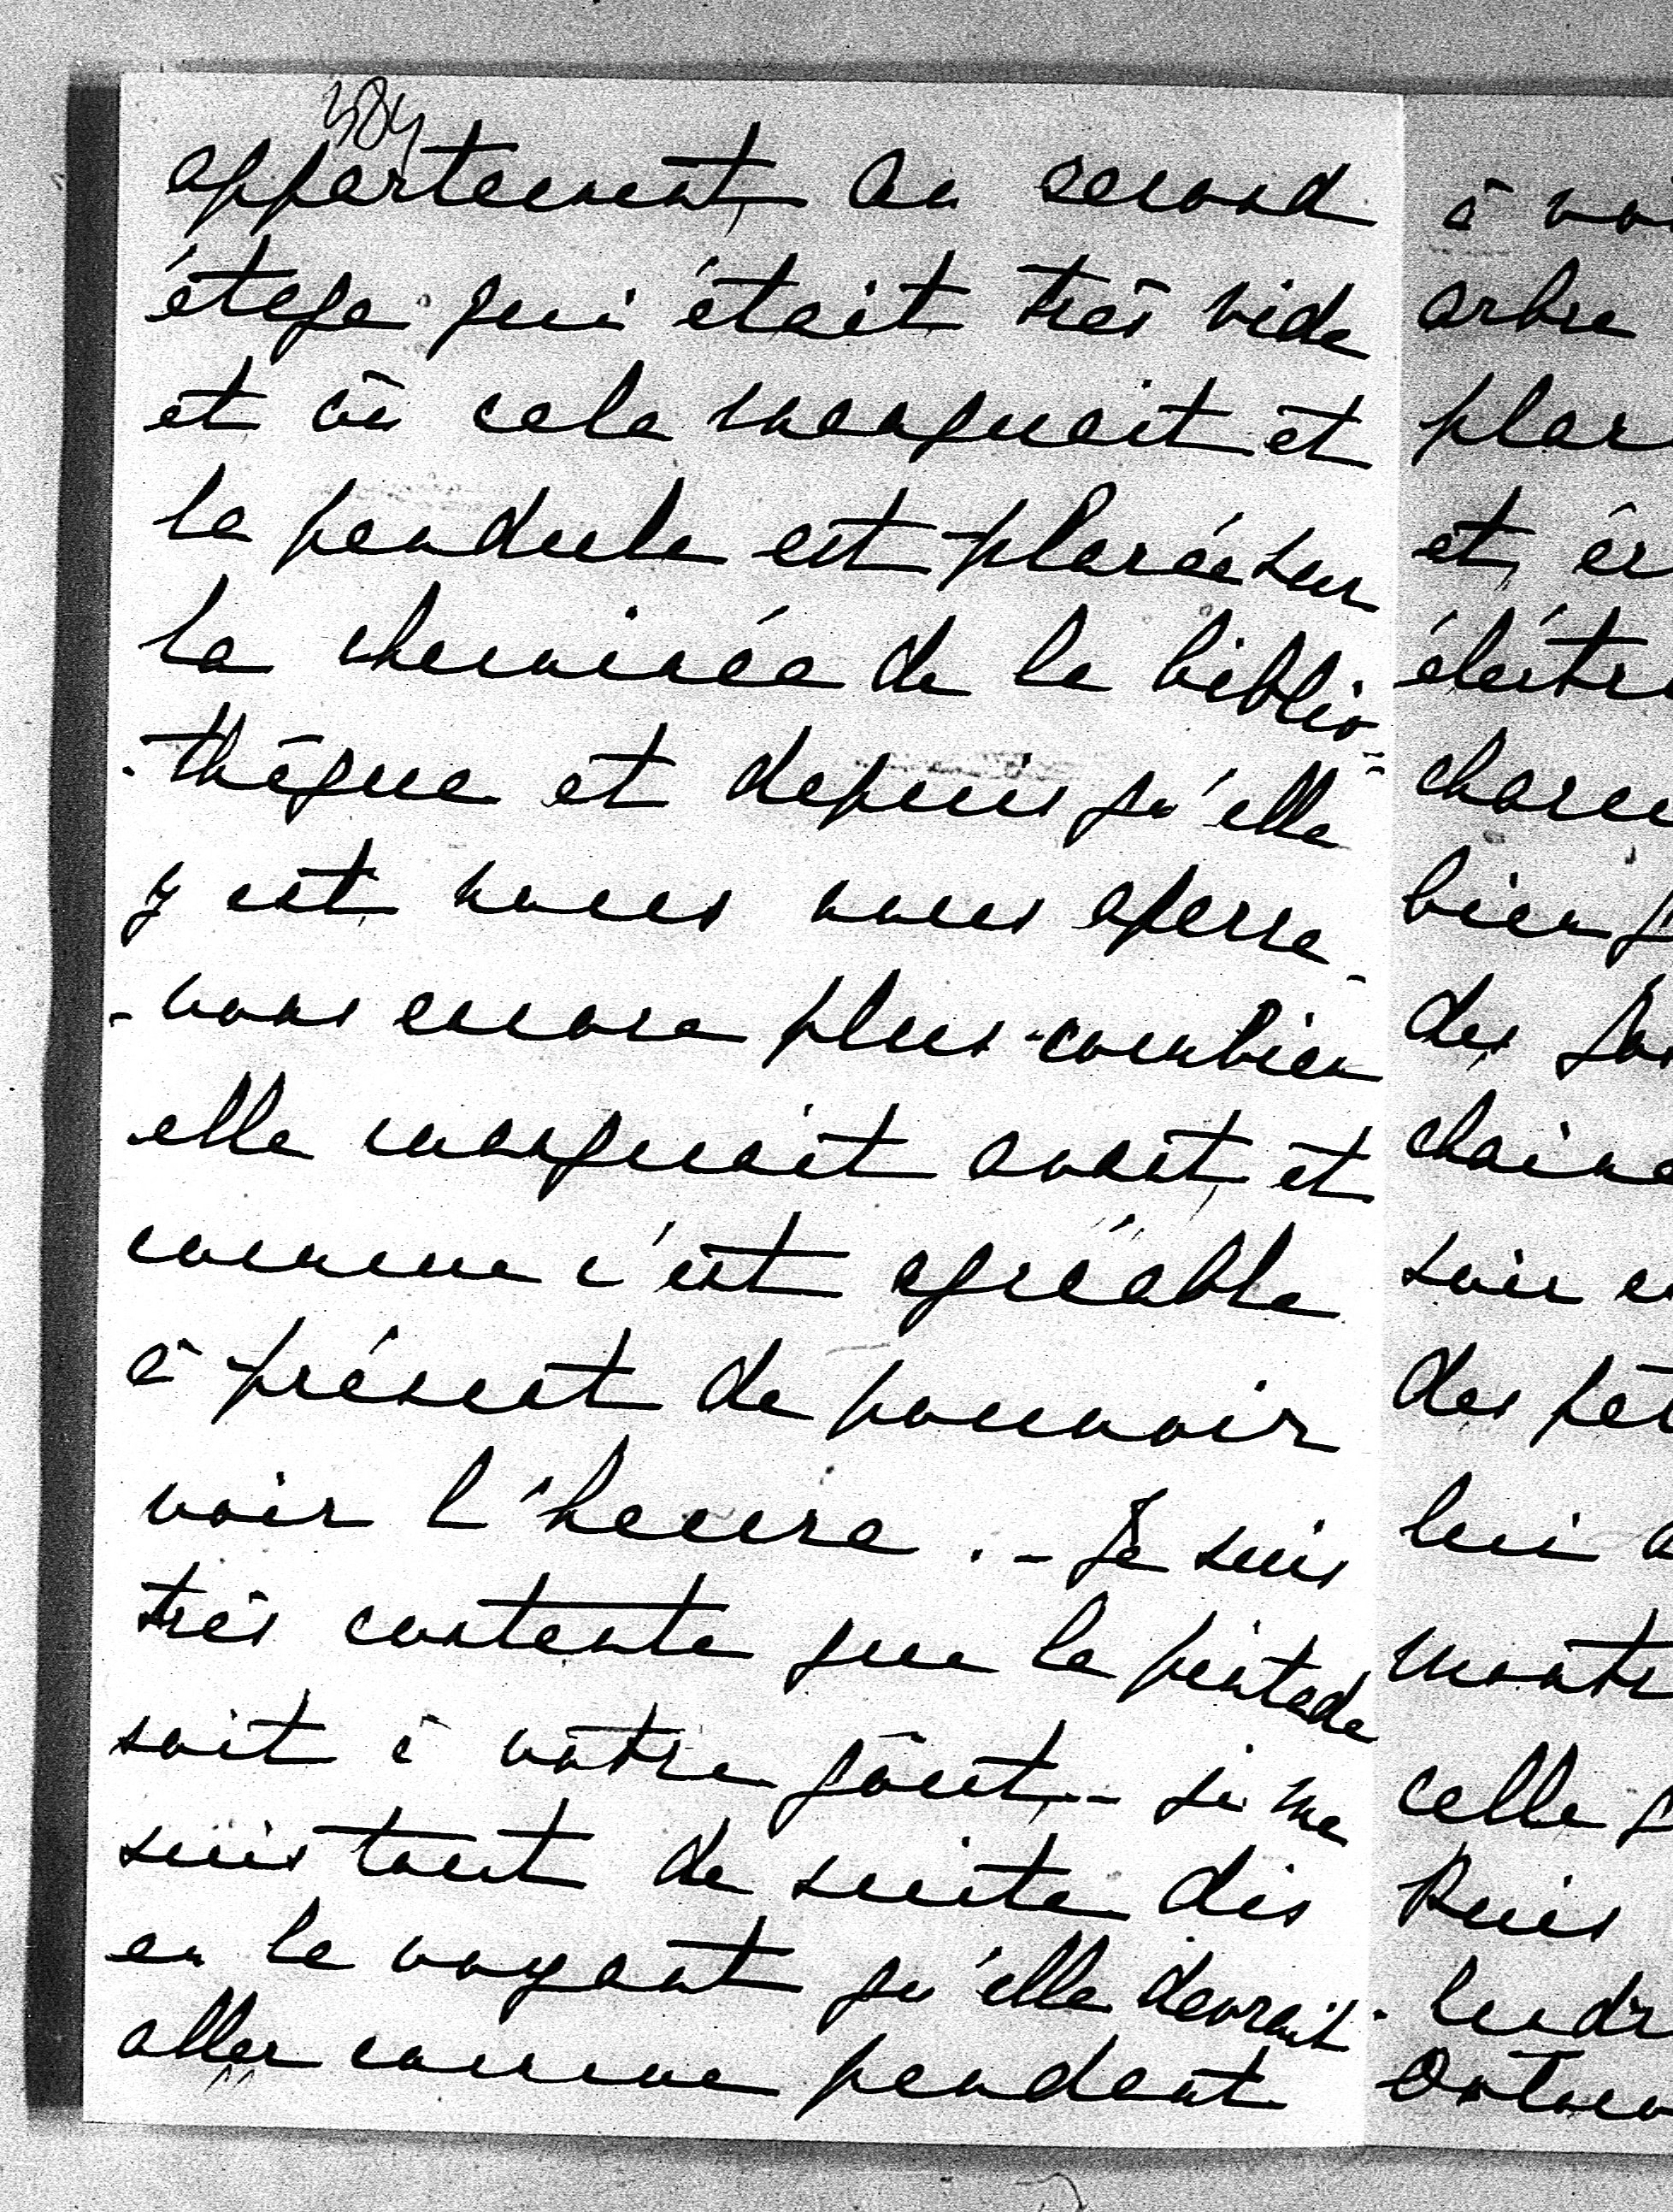 384
appartement, au second
étage qui était très vide
et où cela manquait et
la pendule est placée sur
la cheminée de la biblio-
-thèque et depuis qu'elle
y est nous nous aperce-
-vons encore plus combien
elle manquait avant, et
comme c'est agréable
à présent de pouvoir
voir l'heure. - Je suis
très contente que la pintade
soit à vôtre goût - je me
suis tout de suite dis
en la voyant qu'elle devrait
aller comme pendant
à voi
arbre
plac
et, éc
éléctri
chacu
bien
des
chaine
soir
des pet
lui a
montr
celle
Puis